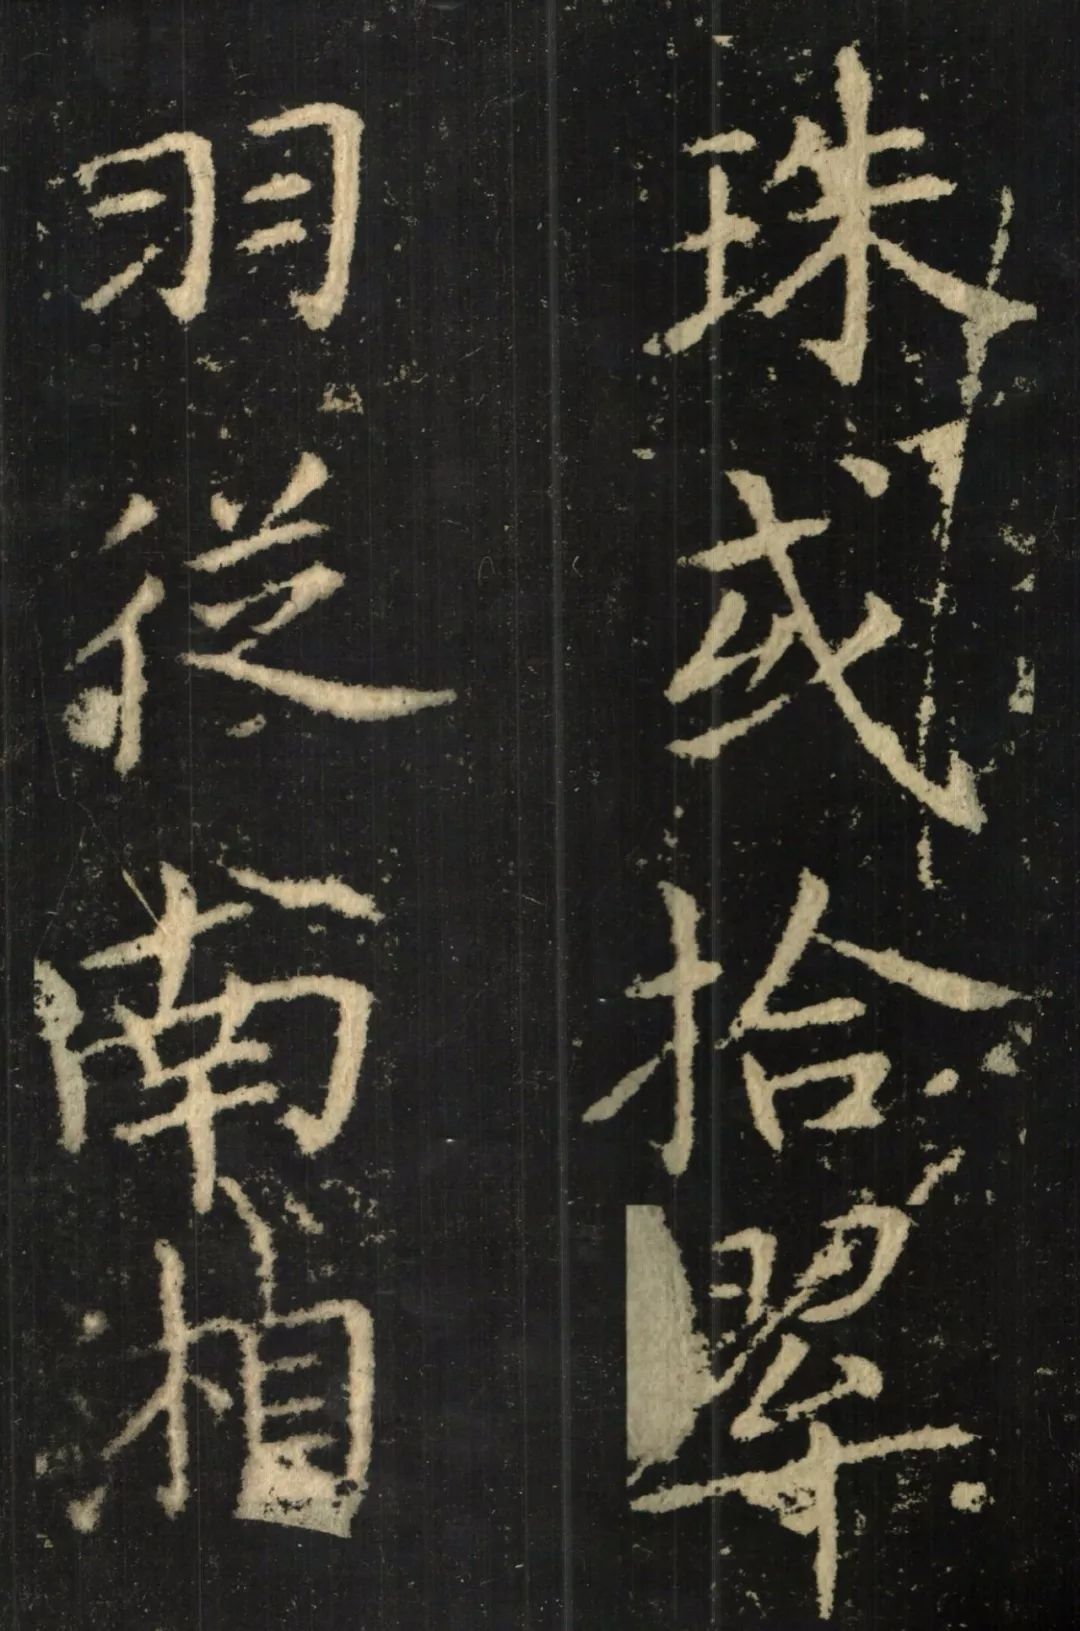 珠或拾翠
羽從南湘